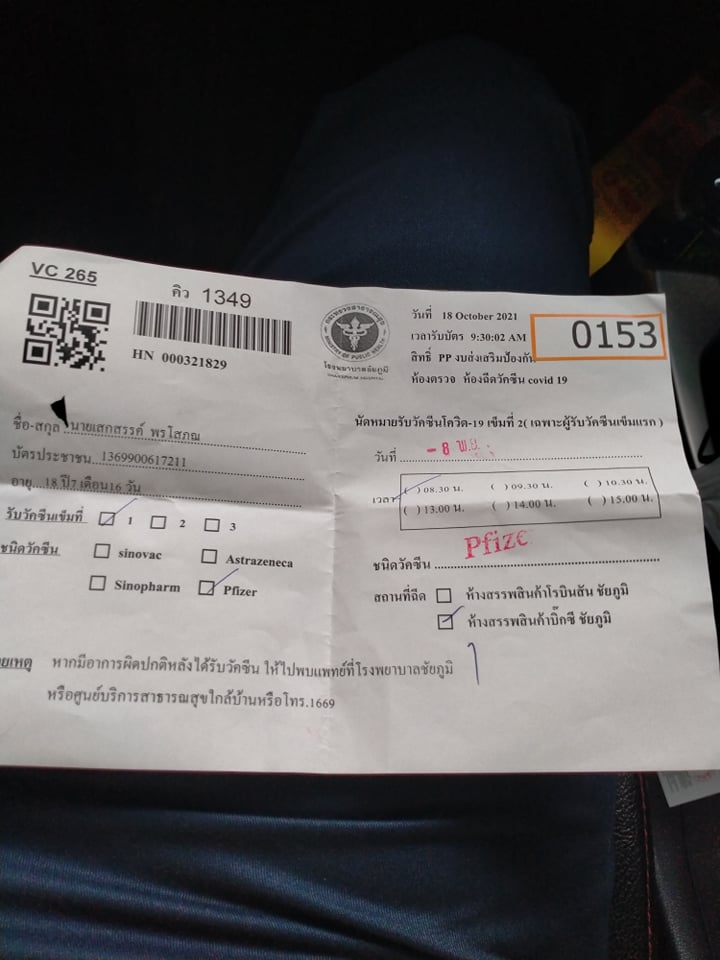 VC 265
คิว 1349
HN 000321829
MINISTRY OF PUBLIC HEALTH
โรงพยาบาลชัยภูมิ
วันที่ 18 October 2021
เวลารับบัตร 9:30:02 AM
0153
สิทธิ์ PP งบส่งเสริมป้องกัน
ห้องตรวจ ห้องฉีดวัคซีน covid 19
ชื่อ-สกุล นายเสกสรรค์ พรโสภณ
บัตรประชาชน 1369900617211
อายุ 18 ปี7 เดือน16 วัน
รับวัคซีนเข็มที่ 1 2 3
ชนิดวัคซีน sinovac Astrazeneca
Sinopharm Pfizer
นัดหมายรับวัคซีนโควิต-19 เข็มที่ 2( เฉพาะผู้รับวัคซีนเข็มแรก )
วันที่ - 8 พ.ย.
เวลา ( ) 08.30 น. ( ) 09.30 น. ( ) 10.30 น.
( ) 13.00 น. ( ) 14.00 น. ( ) 15.00 น.
ชนิดวัคซีน Pfize
สถานที่ฉีด ห้างสรรพสินค้าโรบินสัน ชัยภูมิ
ห้างสรรพสินค้าบิ๊กซี ชัยภูมิ
ายเหตุ หากมีอาการผิดปกติหลังได้รับวัคซีน ให้ไปพบแพทย์ที่โรงพยาบาลชัยภูมิ
หรือศูนย์บริการสาธารณสุขใกล้บ้านหรือโทร.1669